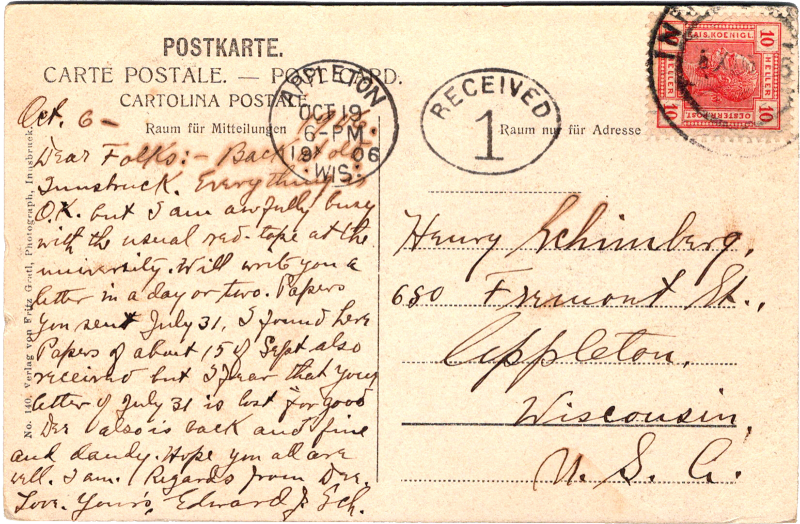 POSTKARTE.
CARTE POSTALE. — POST CARD.
CARTOLINA POSTALE
Raum für Mitteilungen
Raum nur für Adresse
APPLETON
OCT 19
6-PM
1906
WIS.
RECEIVED
1
KAIS. KOENIGL.
10 10
HELLER HELLER
10 10
OESTERR. POST.
No. 140. Verlag von Fritz Gratl, Photograph, Innsbruck.
Oct. 6 –
Dear Folks:– Back in old
Innsbruck. Everything is
O.K. but I am awfully busy
with the usual red-tape at the
university. Will write you a
letter in a day or two. Papers
you sent July 31, I found here
Papers of about 15 of Sept also
received but I fear that your
letter of July 31 is lost for good
Dee also is back and fine
and dandy. Hope you all are
well. I am. Regards from Dee.
Love. Yours, Edward J. Sch.
Henry Schimberg,
680 Fremont St.,
Appleton,
Wisconsin,
U. S. A.